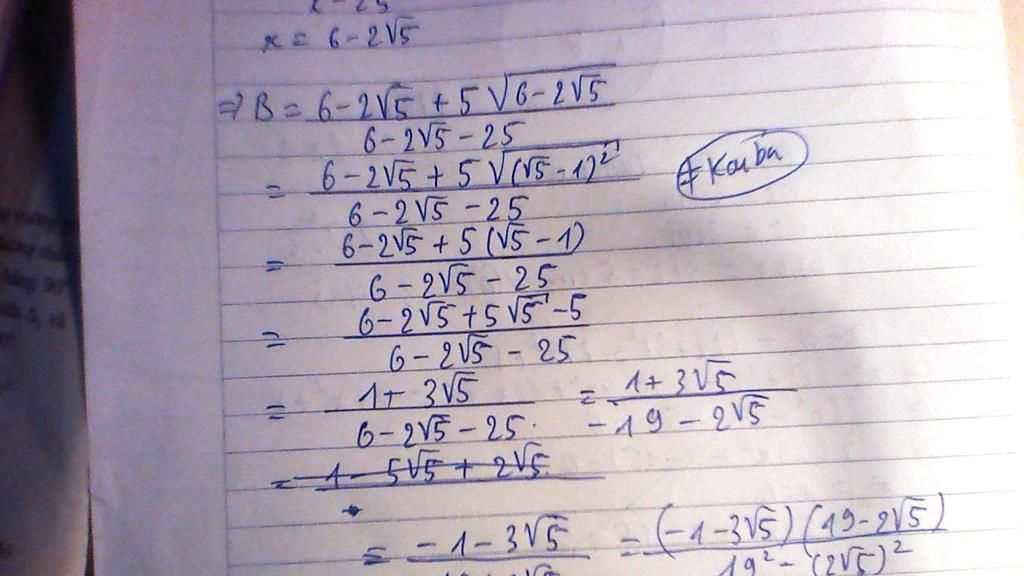 x = 6 - 2√5
⇒ B = (6 - 2√5 + 5√(6 - 2√5)) / (6 - 2√5 - 25)
= (6 - 2√5 + 5√((√5 - 1)²)) / (6 - 2√5 - 25)
#Kouba
= (6 - 2√5 + 5(√5 - 1)) / (6 - 2√5 - 25)
= (6 - 2√5 + 5√5 - 5) / (6 - 2√5 - 25)
= (1 + 3√5) / (6 - 2√5 - 25) = (1 + 3√5) / (-19 - 2√5)
= 1 - 5√5 + 2√5
= -1 - 3√5 = ((-1 - 3√5)(19 - 2√5)) / (19² - (2√5)²)